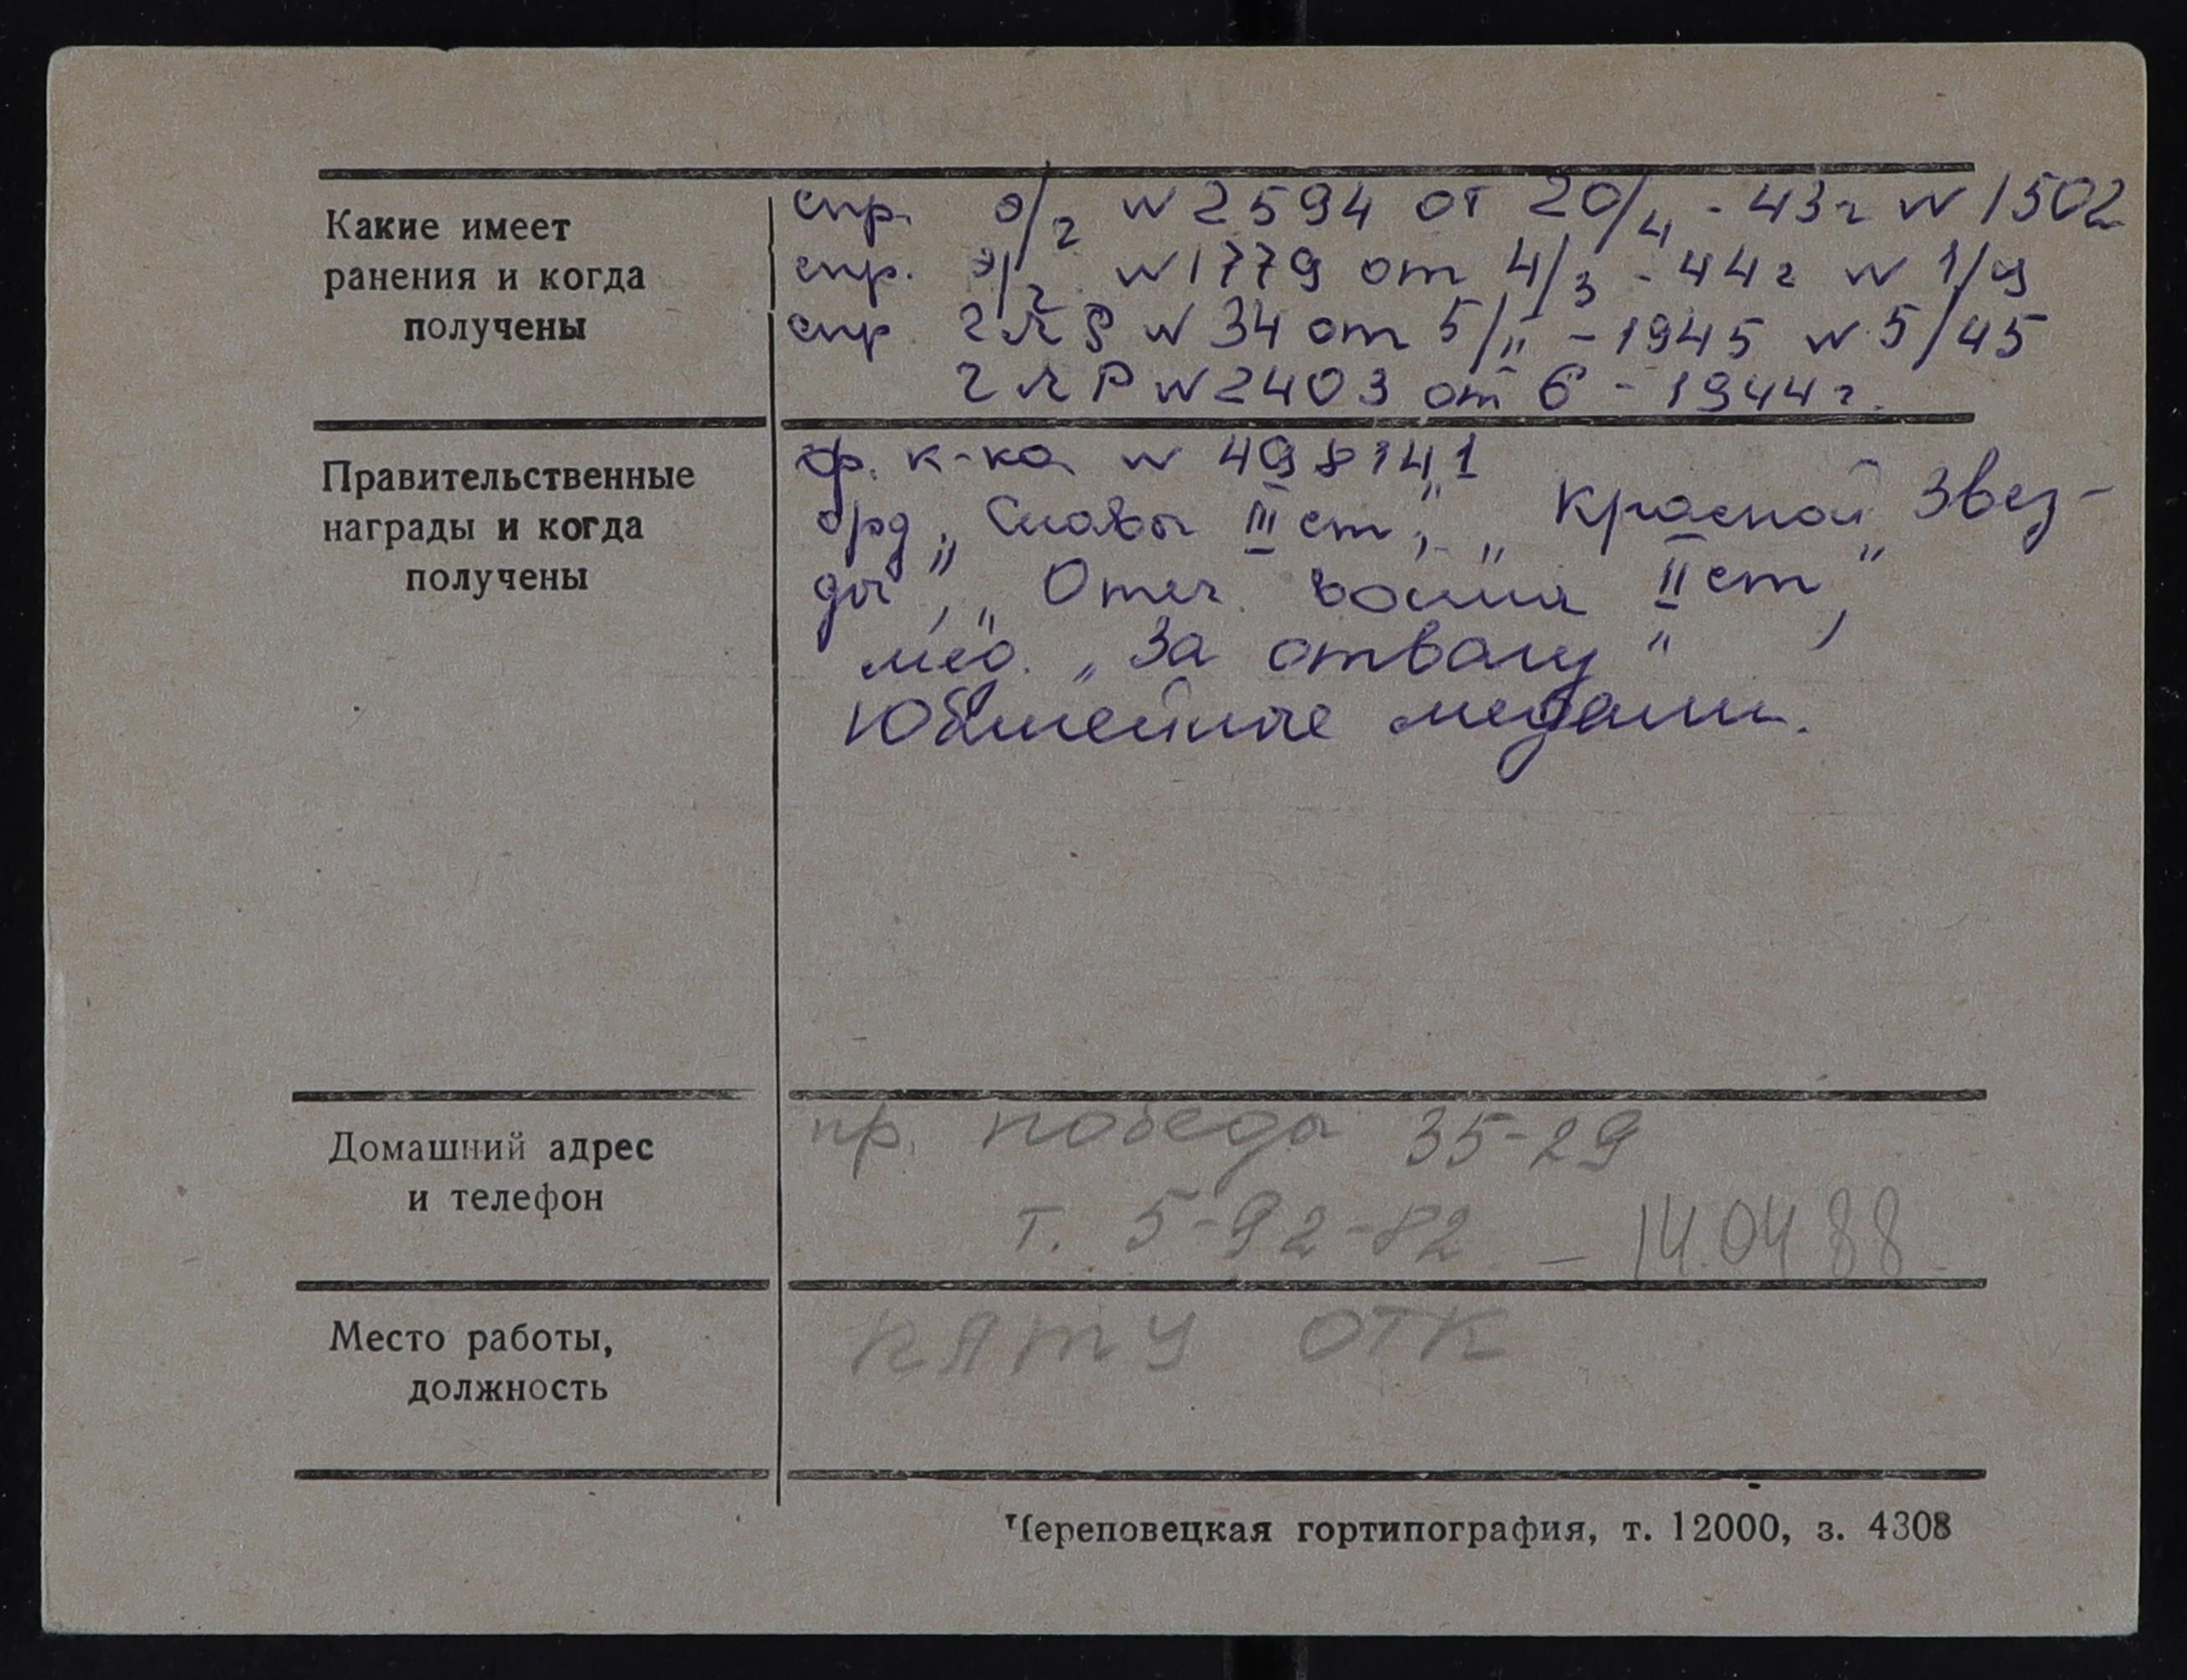 Какие имеет
ранения и когда
получены
спр. э/г № 2594 от 20/4 - 43г № 1502
спр. э/г № 1779 от 4/3 - 44г № 1/9
спр. ГЛР № 34 от 5/II - 1945 № 5/45
ГЛР № 2403 от 6 - 1944г.
Правительственные
награды и когда
получены
ор. к-ка № 498141
орд. „Славы III ст", „Красной Звез-
ды", „Отеч. войны II ст",
мед. „За отвагу"
Юбилейные медали.
Домашний адрес
и телефон
пр. победы 35-29
т. 5-92-82 - 14.04 88
Место работы,
должность
ОТК
Череповецкая гортипография, т. 12000, з. 4308